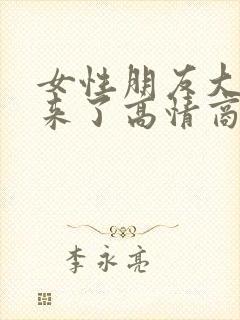 女性朋友大
来了高情商
李永亮